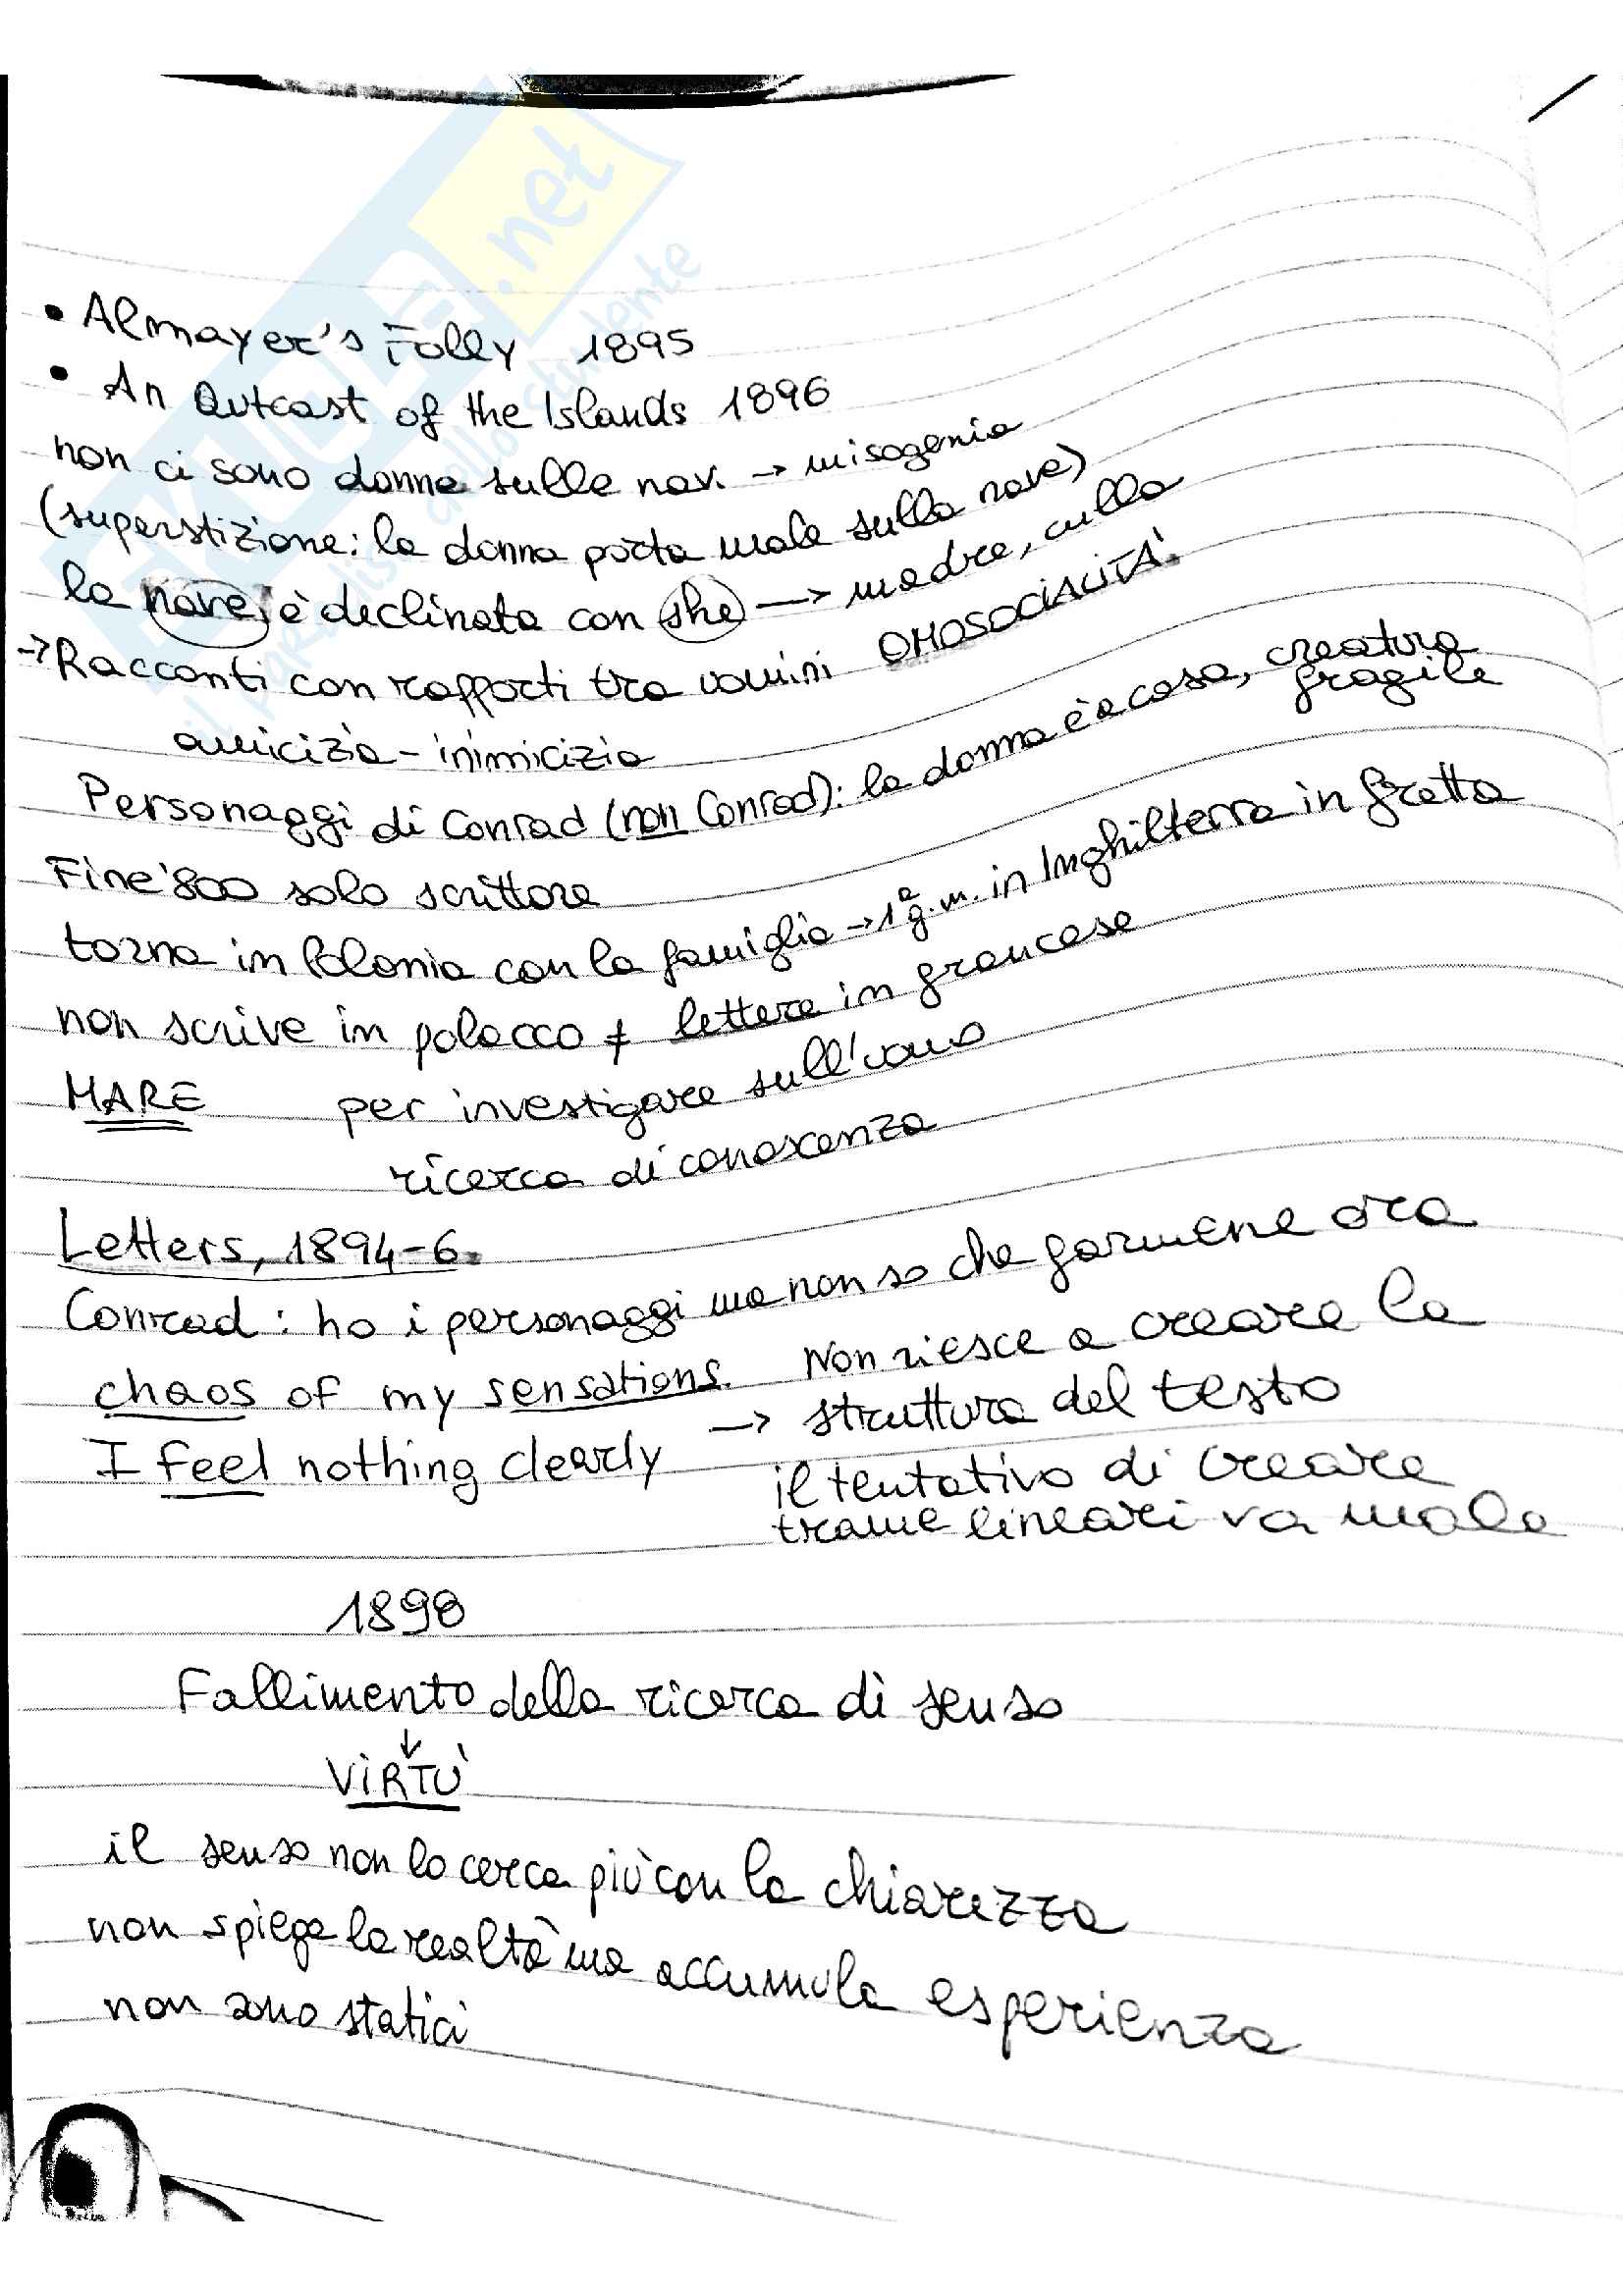 • Almayer's Folly 1895
• An Outcast of the Islands 1896
non ci sono donne sulle nav. → misogenia
(superstizione: la donna porta male sulla nave)
la nave è declinata con she → madre, culla
→ Racconti con rapporti tra uomini OMOSOCIALITÀ
amicizia - inimicizia
Personaggi di Conrad (non Conrad): la donna è a casa, creatura fragile
Fine '800 solo scrittore
torna in Polonia con la famiglia → 1ª g.m. in Inghilterra in fretta
non scrive in polacco ≠ lettere in francese
MARE per investigare sull'uomo
ricerca di conoscenza
Letters, 1894-6
Conrad: ho i personaggi ma non so che farmene ora
chaos of my sensations. Non riesce a creare la
I feel nothing clearly → struttura del testo
il tentativo di creare
trame lineari va male
1898
Fallimento della ricerca di senso
↓
VIRTÙ
il senso non lo cerca più con la chiarezza
non spiega la realtà ma accumula esperienza
non sono statici
EKUOLA.net
il paradiso dello studente